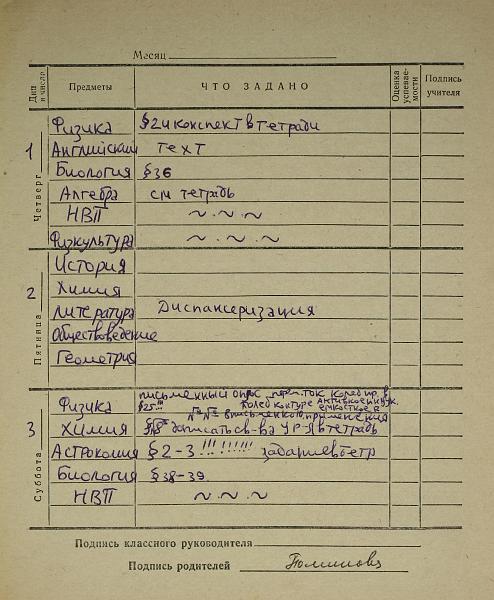 Месяц
Дни и число Предметы ЧТО ЗАДАНО Оценка успевае-мости Подпись учителя
Четверг
1
Физика §24 конспект в тетради
Английский текст
Биология §36
Алгебра см тетрадь
НВП ~.~.~
Физкультура ~.~.~
Пятница
2
История
Химия
Литература Диспансеризация
Обществоведение
Геометрия
Суббота
3
письменный опрос перем. ток
Физика §25!!! контуре
письменно применения
Химия записать св-ва ур-я в тетрадь
Астрономия §2-3 !!! !!!!!! задание в тетр
Биология §38-39.
НВП ~.~.~
Подпись классного руководителя
Подпись родителей